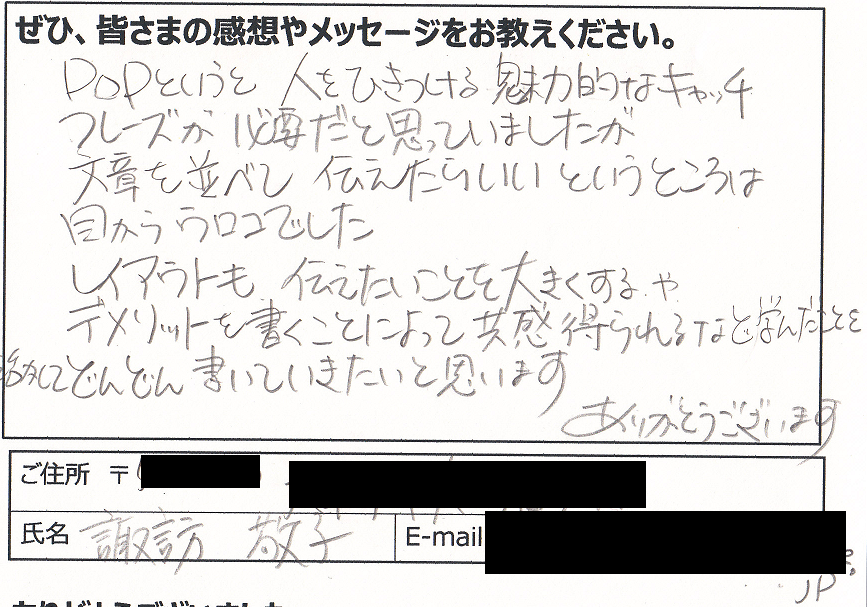 ぜひ、皆さまの感想やメッセージをお教えください。
POPというと 人をひきつける 魅力的なキャッチ
フレーズが 必要だと思っていましたが
文章を並べて 伝えたらいい というところは
目からウロコでした
レイアウトも 伝えたいことを大きくする や
デメリットを書くことによって共感得られるなど学んだことを
どんどん書いていきたいと思います
ありがとうございます
ご住所 〒
氏名 諏訪 敬子 E-mail
JP